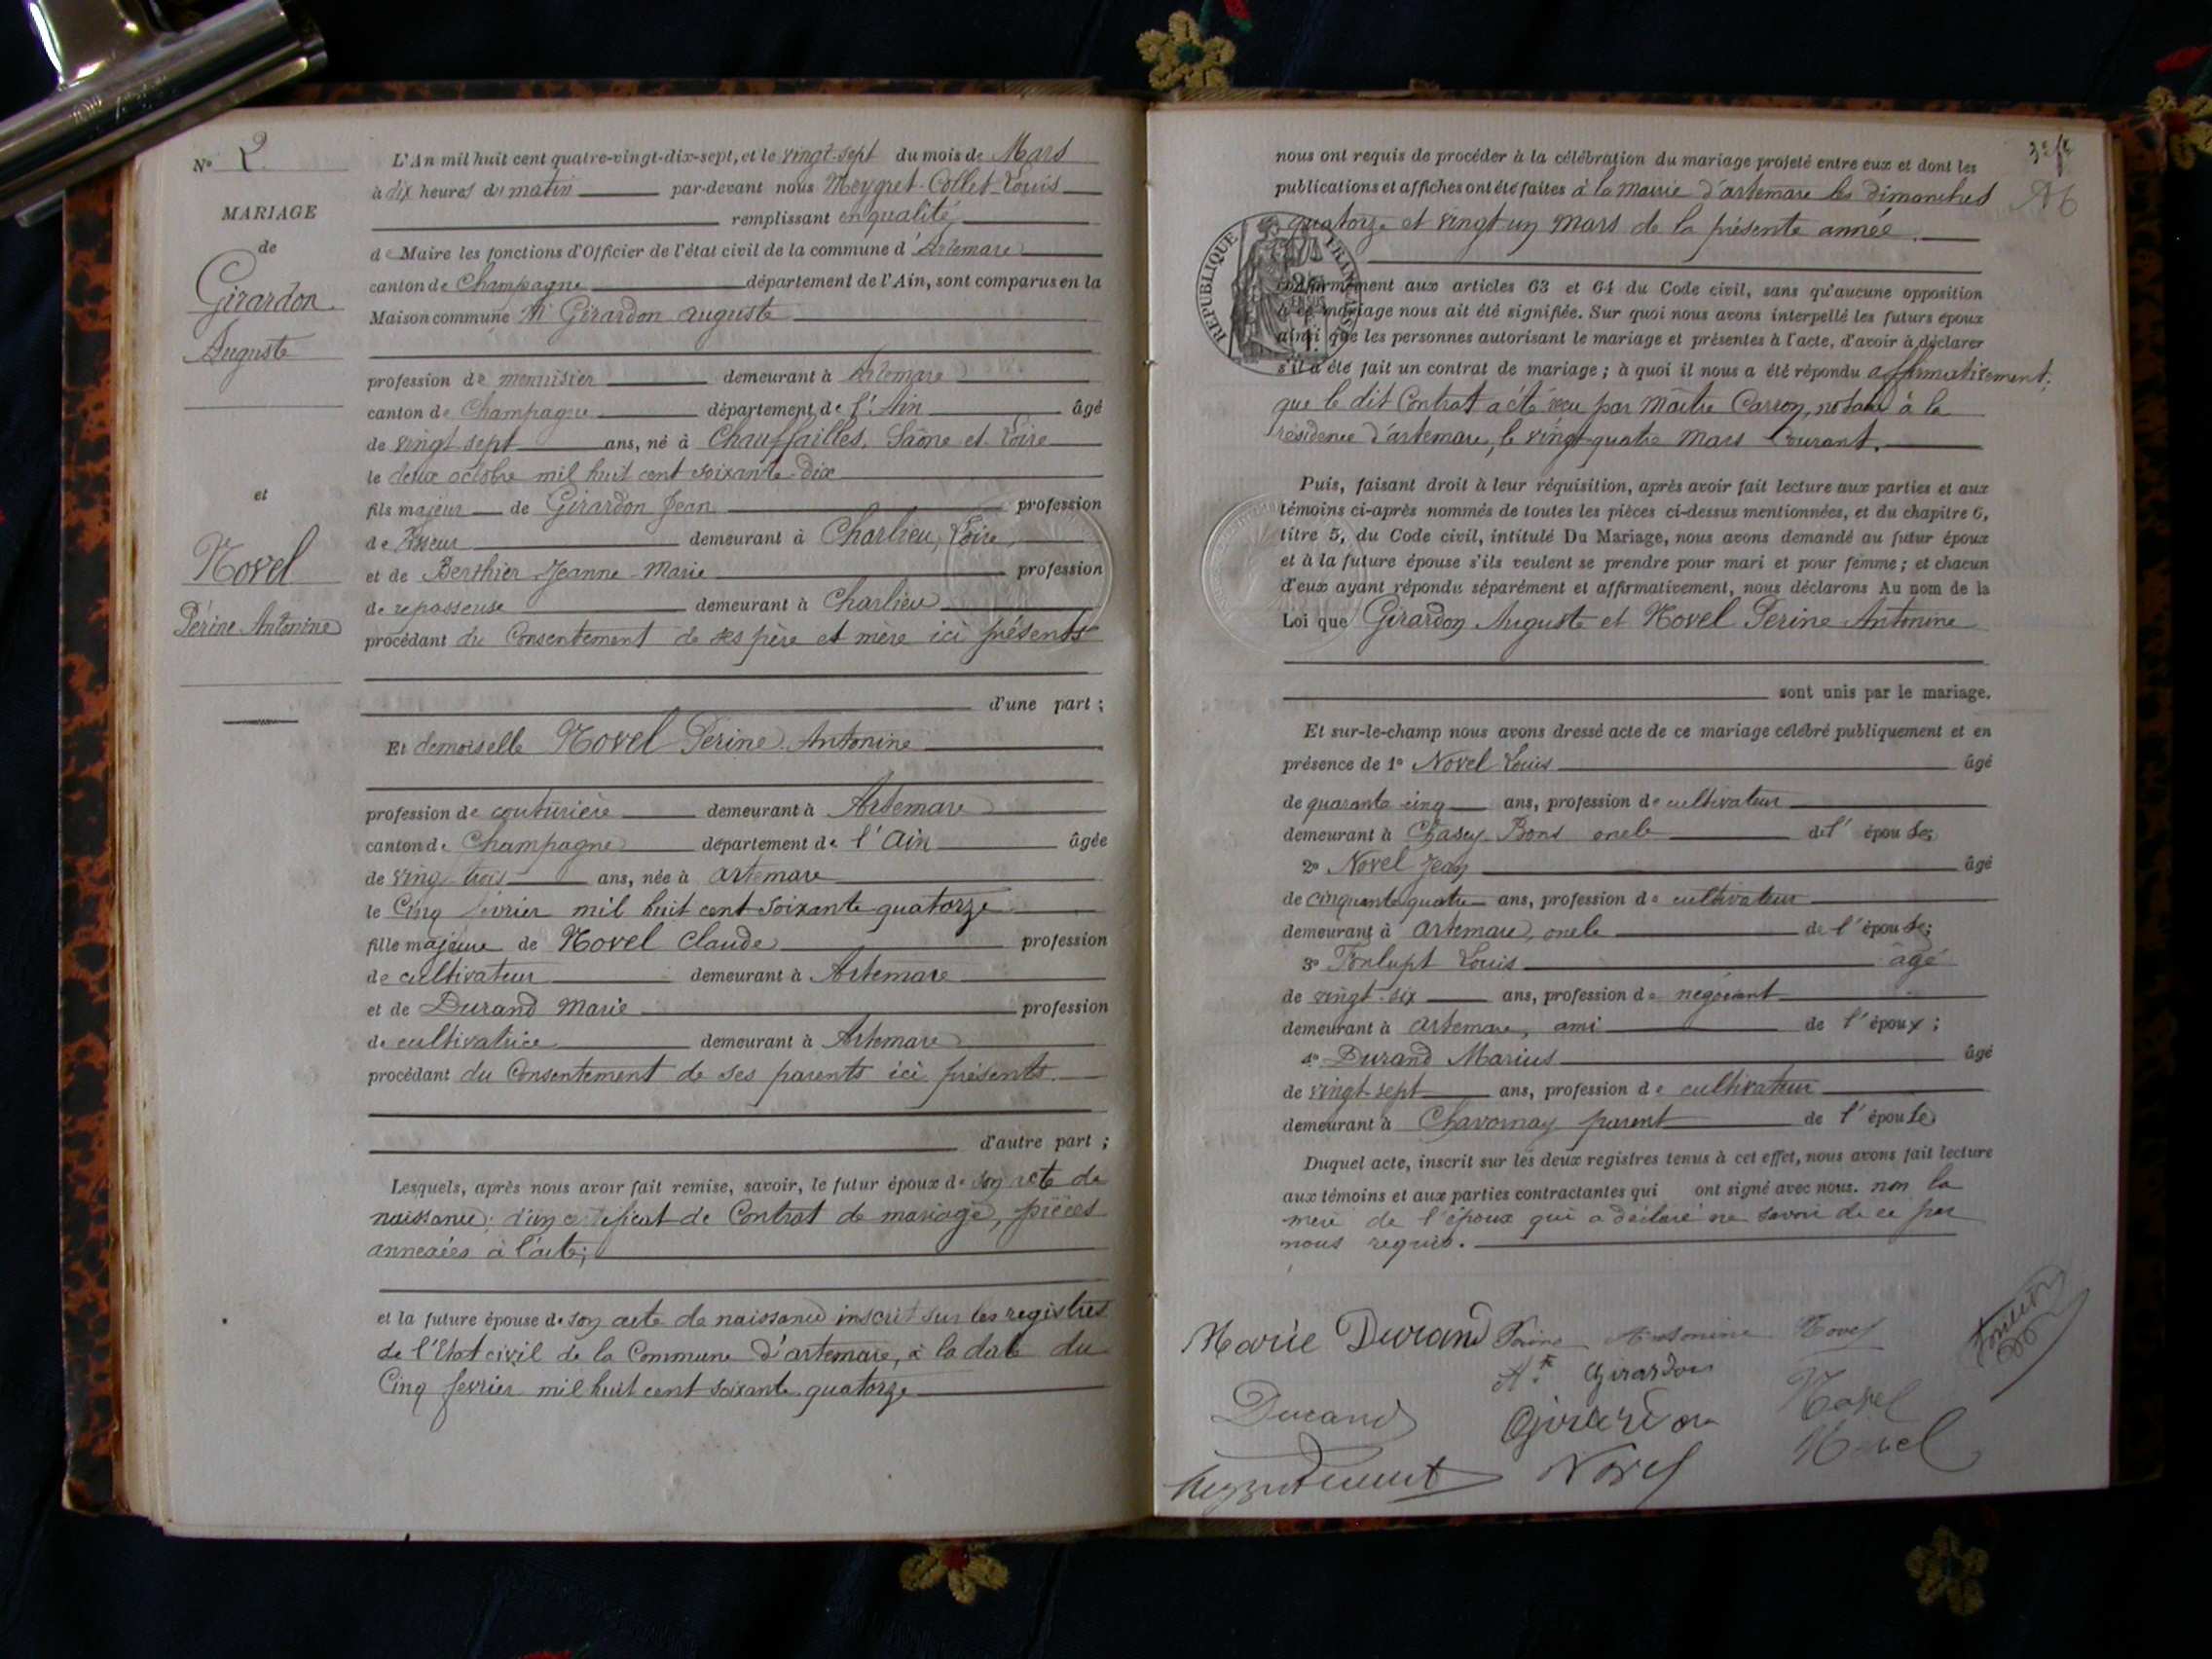 N° 2
MARIAGE
de
Girardon
Auguste
et
Novel
Périne Antonine
L'An mil huit cent quatre-vingt-dix-sept, et le vingt-sept du mois de Mars
à dix heures du matin par-devant nous Meygret-Collet Louis
remplissant en qualité
de Maire les fonctions d'Officier de l'état civil de la commune d'Artemare
canton de Champagne département de l'Ain, sont comparus en la
Maison commune Mr Girardon Auguste
profession de menuisier demeurant à Artemare
canton de Champagne département de l'Ain âgé
de vingt sept ans, né à Chauffailles, Saône et Loire
le deux octobre mil huit cent soixante-dix
fils majeur de Girardon Jean profession
de demeurant à Charlieu, Loire
et de Berthier Jeanne-Marie profession
de repasseuse demeurant à Charlieu
procédant du Consentement de ses père et mère ici présents
d'une part ;
Et demoiselle Novel Perine Antonine
profession de couturière demeurant à Artemare
canton de Champagne département de l'Ain âgée
de vingt trois ans, née à Artemare
le Cinq février mil huit cent soixante quatorze
fille majeure de Novel Claude profession
de cultivateur demeurant à Artemare
et de Durand Marie profession
de cultivatrice demeurant à Artemare
procédant du Consentement de ses parents ici présents.
d'autre part ;
Lesquels, après nous avoir fait remise, savoir, le futur époux de son acte de
naissance; d'un certificat de Contrat de mariage, pièces
annexées à l'acte;
et la future épouse de son acte de naissance inscrit sur les registres
de l'Etat civil de la Commune d'artemare, à la date du
Cinq fevrier mil huit cent soixante quatorze
nous ont requis de procéder à la célébration du mariage projeté entre eux et dont les
publications et affiches ont été faites à la Mairie d'artemare les dimanches
quatorze et vingt un mars de la présente année.
REPUBLIQUE FRANÇAISE
conformément aux articles 63 et 64 du Code civil, sans qu'aucune opposition
à ce mariage nous ait été signifiée. Sur quoi nous avons interpellé les futurs époux
ainsi que les personnes autorisant le mariage et présentes à l'acte, d'avoir à déclarer
s'il a été fait un contrat de mariage ; à quoi il nous a été répondu affirmativement;
que le dit Contrat a été reçu par Maître Carron, notaire à la
résidence d'artemare, le vingt-quatre Mars courant.
Puis, faisant droit à leur réquisition, après avoir fait lecture aux parties et aux
témoins ci-après nommés de toutes les pièces ci-dessus mentionnées, et du chapitre 6,
titre 5, du Code civil, intitulé Du Mariage, nous avons demandé au futur époux
et à la future épouse s'ils veulent se prendre pour mari et pour femme ; et chacun
d'eux ayant répondu séparément et affirmativement, nous déclarons Au nom de la
Loi que Girardon Auguste et Novel Perine Antonine
sont unis par le mariage.
Et sur-le-champ nous avons dressé acte de ce mariage célébré publiquement et en
présence de 1° Novel Louis âgé
de quarante cinq ans, profession de cultivateur
demeurant à Chasey-Bons oncle de l'épouse;
2° Novel Jean âgé
de cinquante quatre ans, profession de cultivateur
demeurant à Artemare, oncle de l'épouse;
3° Ponlupt Louis âgé
de vingt-six ans, profession de négociant
demeurant à Artemare, ami de l'époux ;
4° Durand Marius âgé
de vingt-sept ans, profession de cultivateur
demeurant à Chavornay parent de l'épouse
Duquel acte, inscrit sur les deux registres tenus à cet effet, nous avons fait lecture
aux témoins et aux parties contractantes qui ont signé avec nous. non la
mère de l'époux qui a déclaré ne savoir de ce par
nous requis.
Marie Durand Perine Antonine Novel
Ate Girardon
Durand Girardon Novel
Novel Novel